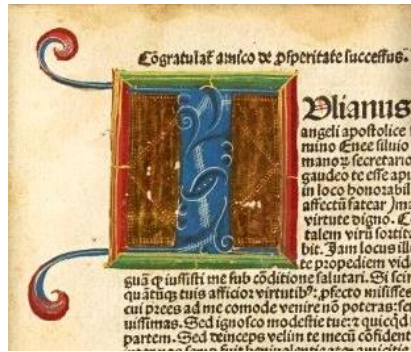 Cōgratulat̄ amico de ꝓsperitate successus.
I
Vlianus
angeli apostolice
mino Enee siluio
manoꝝ secretario
gaudeo te esse apu
in loco honorabil
affectū fatear )ma
virtute digno. C
talem virū sortita
bit. Jam locus ill
te propediem vid
quā ꝙ iussisti me sub cōditione salutari. Si scir
quātūqꝫ tuis afficior virtutibꝰ: ꝓfecto misisses
cui preces ad me comode venire nō poteras: sci
uissimas. Sed ignosco modestie tue: ⁊ quicqd
partem. Sed deinceps velim te mecū cōfident